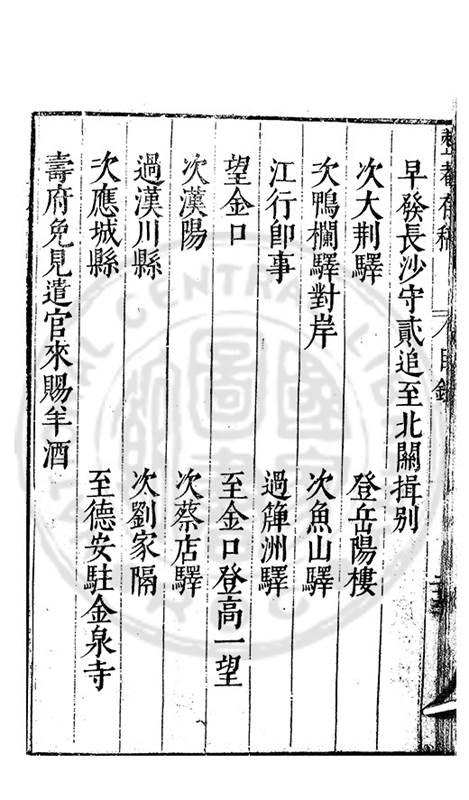 早發長沙守貳追至北關揖別
次大荆驛
登岳陽樓
次鴨欄驛對岸
次魚山驛
江行即事
過簰洲驛
望金口
至金口登高一望
次漢陽
次蔡店驛
過漢川縣
次劉家隔
次應城縣
至德安駐金泉寺
壽府免見遣官來賜羊酒